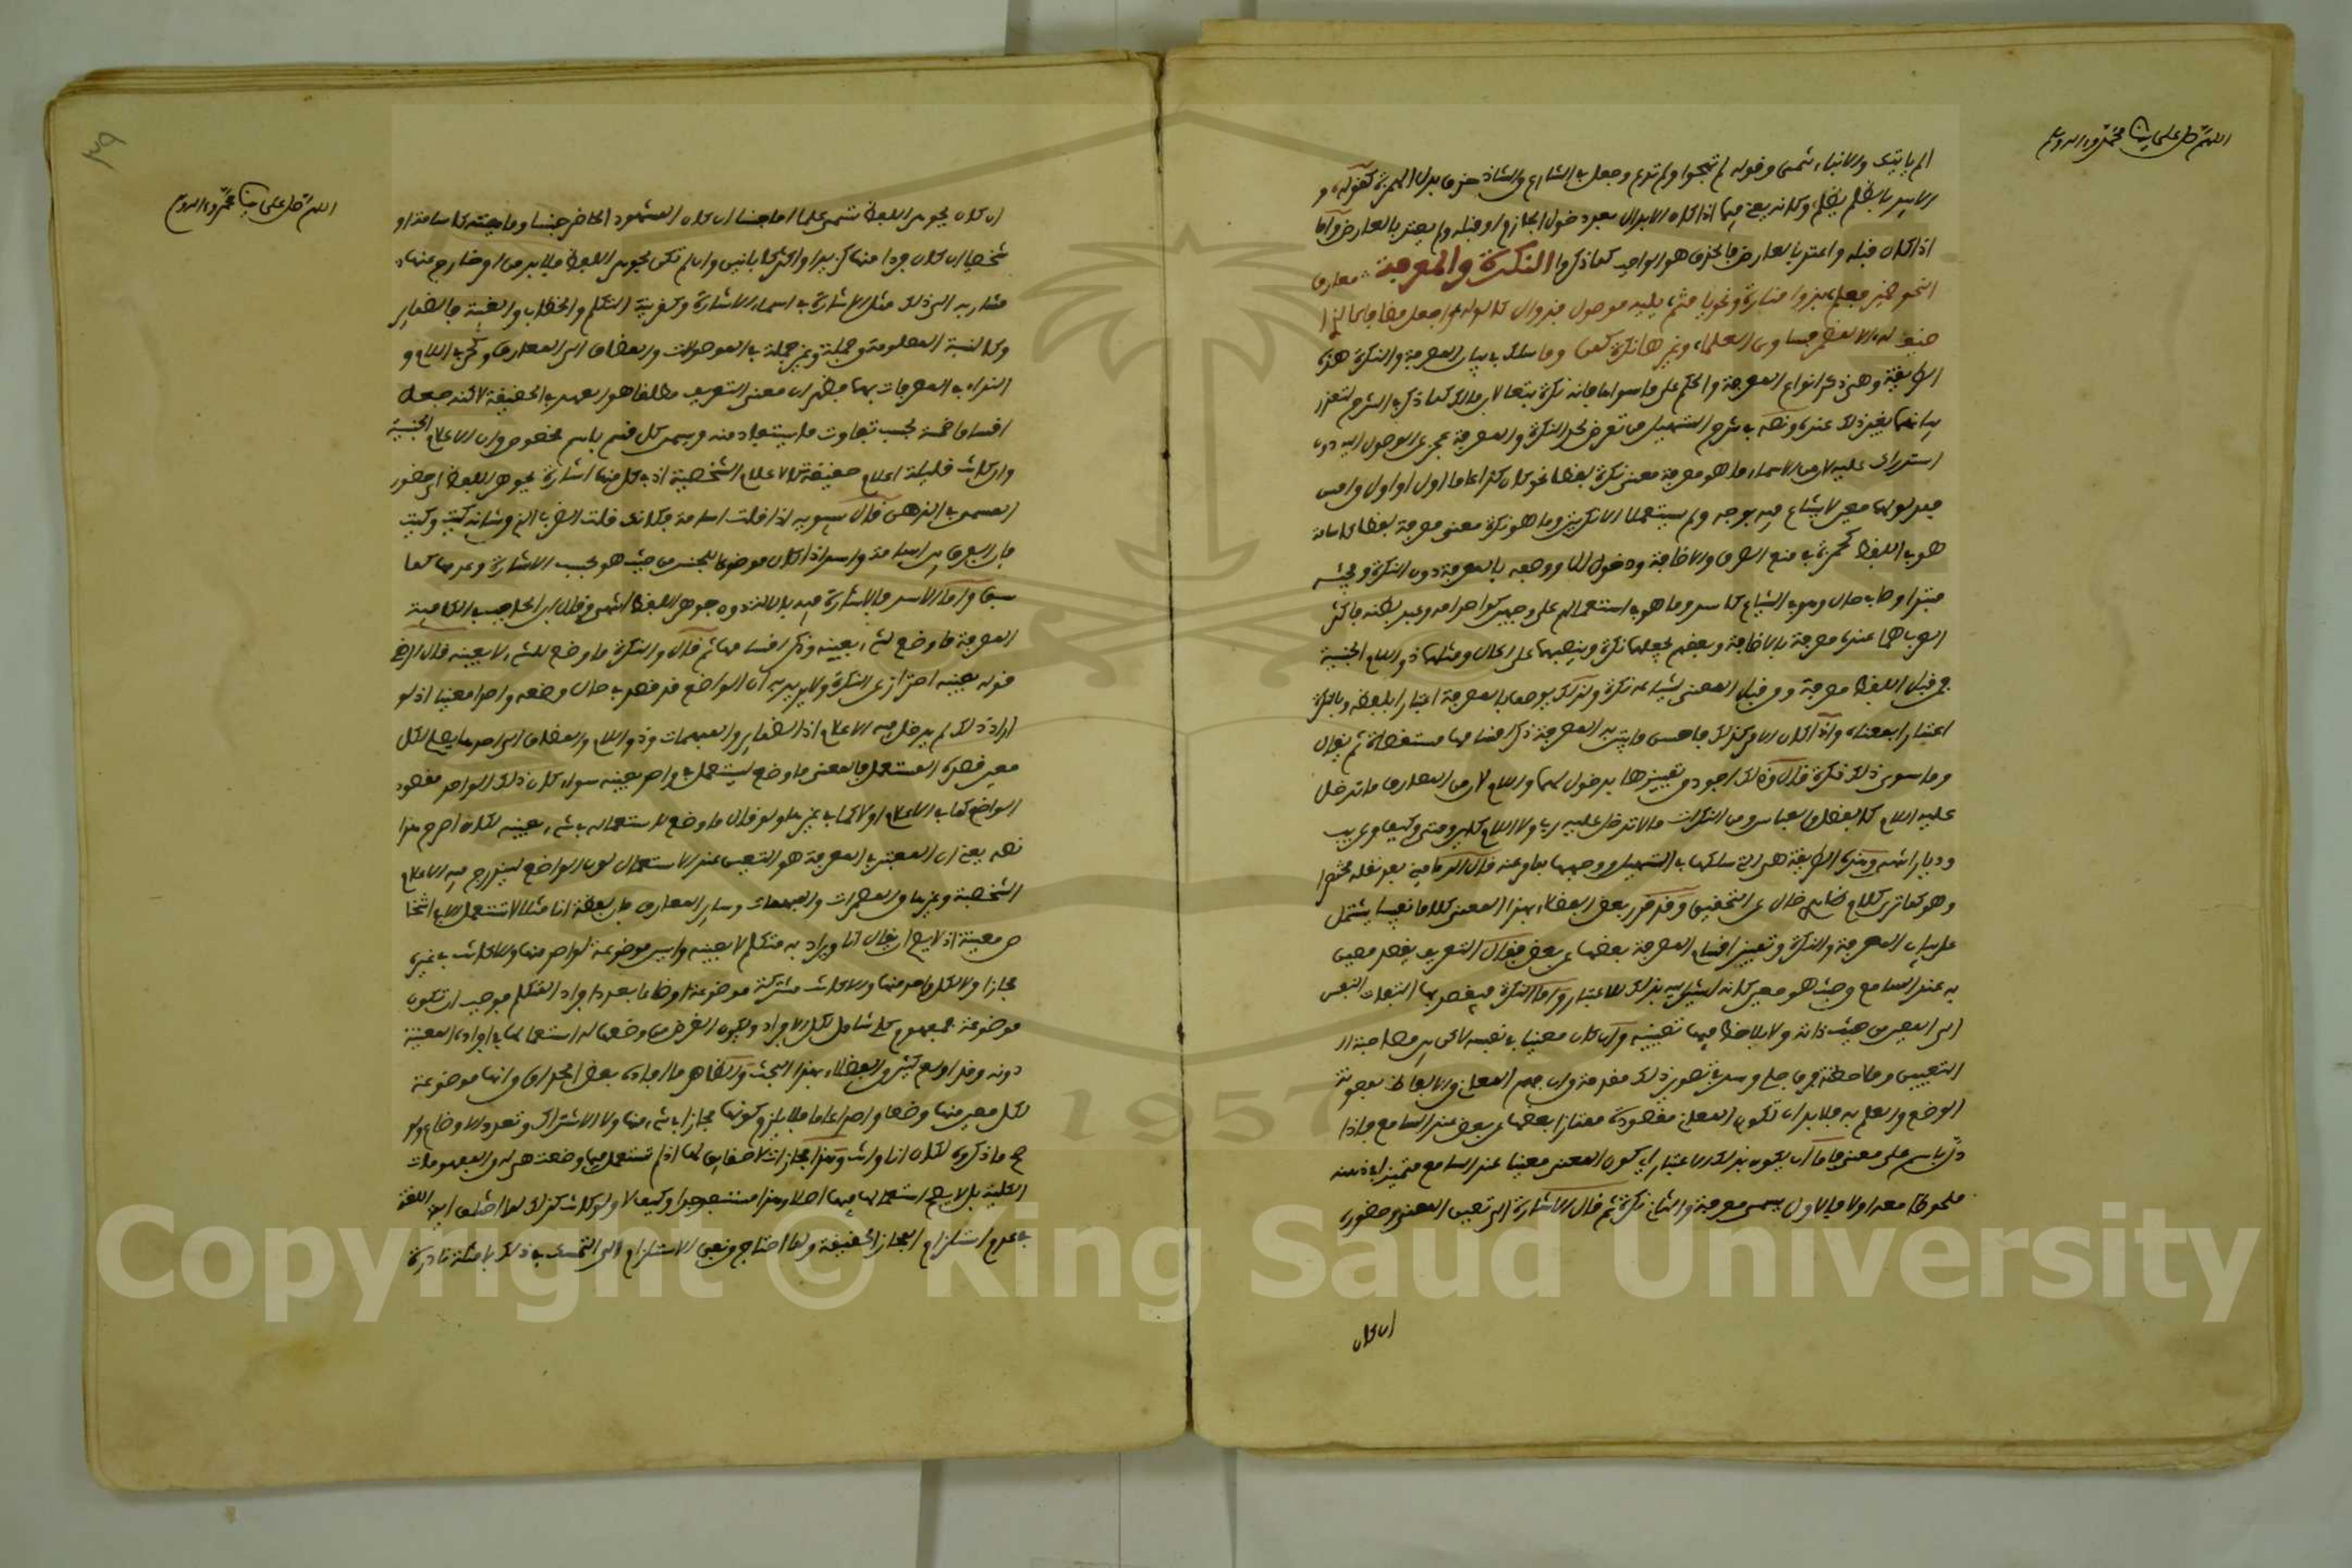 اللهم صل على سيدنا محمد وءاله وسلم
الم ياتيك والانباء تنمي وقوله لم تهجوا ولم تدع وجعل في الشارح والشاذ حذف بدل الهمزة كقوله و
الا يبد بالظلم يظلم وكانه يعني فيما اذا كان الابدال بعد دخول الجازم او قبله ولم يعتد بالعارض واما
اذا كان قبله واعتد بالعارض فالحذف هو الواجب كما ذكروا النكرة والمعرفة معارف
النحو
صيغ له
الطريقة وهي ذكر انواع المعرفة والحكم على ما سواها بانه نكرة تبعا لابن مالك كما ذكر في الشرح لتعذر
بيانهما بغير ذلك عنده ونصه في شرح التسهيل من تعرض لحد النكرة والمعرفة عجز عن الوصول اليه دون
استدراك عليه لان من الاسماء ما هو معرفة معنى نكرة لفظا نحو كان كذا عاما اول او اول وامس
فمدلولهما معين لا شياع فيه بوجه ولم يستعملا الا نكرتين وما هو نكرة معنى معرفة لفظا كاسامة
هو في اللفظ كحمزة في منع الصرف والاضافة ودخول ال ووصفه بالمعرفة دون النكرة ومجيئه
مبتدا وصاحب حال وهو في الشياع كاسد وما هو في استعمالهم على وجهين كواحد امه وعبد بطنه فاكثر
العرب هما عنده معرفة بالاضافة وبعضهم يجعلهما نكرة وينصبهما على الحال ومثلهما ذو اللام الجنسية
فمن قبل اللفظ معرفة ومن قبل المعنى لشياعه نكرة ولذلك يوصف بالمعرفة اعتبارا بلفظه وبالنكرة
اعتبارا بمعناه واذا كان الامر كذلك فاحسن ما يتبين به المعرفة ذكر اقسامها مستقصاة ثم يقال
وما سوى ذلك نكرة قال وذلك اجود من تمييزها بدخول رب واللام لان من المعارف ما تدخل
عليه اللام كالفضل والعباس ومن النكرات ما لا تدخل عليه رب ولا اللام كاين ومتى وكيف وعريب
وديار انتهى وهذه الطريقة هي التي سلكها في التسهيل
وهو كما ترى كلام خال عن التحقيق وقد قرر بعض الفضلاء بهذا المعنى كلاما نفيسا يشتمل
على بيان المعرفة والنكرة وتمييز اقسام المعرفة بعضها عن بعض فقال التعريف يقصد به معين
به عند السامع من حيث هو معين كانه اشير اليه بذلك الاعتبار واما النكرة فيقصد بها التفات النفس
الى المعين من حيث ذاته ولا يلاحظ فيها تعيينه وان كان معينا في نفسه لاكن بين مصاحبة ال
التعيين وملاحظته فرق جلي وسبيل تصوير ذلك مقدمة وان فهم المعاني من الالفاظ بمعونة
الوضع والعلم به فلا بد ان تكون المعاني مقصودة ممتازا بعضها عن بعض عند السامع فاذا
دل باسم على معنى فاما ان يكون بذلك اعتبار اي كون المعنى معينا عند السامع متميزا في ذهنه
ملحوظا معه او لا فالاول يسمى معرفة والثاني نكرة ثم قال الاشارة الى تعيين المعنى وحضوره
ان كان
اللهم صل على سيدنا محمد وءاله وسلم
٣٩
ان كان بجوهر اللفظ تسمى علما اما جنسا ان كان المشهود الحاضر جنسا وماهية كاسامة او
شخصيا ان كان فردا منها كزيد او اكثر كابانين وان لم تكن بجوهر اللفظ فلا بد من امر خارج عنه
مشار به الى ذلك مثل الاشارة في اسماء الاشارة وكقرينة التكلم والخطاب والغيبة في الضماير
وكالنسبة المعلومة جملة وغير جملة في الموصولات والمضاف الى المعارف وكحرف اللام و
النداء في المعرفات بهما فظهر ان معنى التعريف مطلقا هو العهد في الحقيقة لاكنه جعل
اقساما خمسة بحسب تفاوت ما يستفاد منه وسمي كل قسم باسم مخصوص وان الاعلام الجنسية
وان كانت قليلة اعلام حقيقة كالاعلام الشخصية اذ في كل منها اشارة بجوهر اللفظ الى حضور
المسمى في الذهن قال سيبويه اذا قلت اسامة فكانك قلت الضرب الذي شانه كيت وكيت
فان الفرق بين اسامة واسد اذا كان موضوعا للجنس من حيث هو بحسب الاشارة وعدمها كما
سبق واما الاسد فالاشارة فيه بالالة دون جوهر اللفظ انتهى وقال ابن الحاجب في الكافية
المعرفة ما وضع لشيء بعينه وذكر اقسامها ثم قال والنكرة ما وضع لشيء لا بعينه قال الرضي
قوله بعينه احتراز عن النكرة ولا يريد به ان الواضع قد قصد في حال وضعه واحدا معينا اذ لو
اراد ذلك لم يدخل فيه الا الاعلام اذ الضماير والمبهمات وذو اللام والمضاف الى احدها يصلح لكل
معين قصده المستعمل فالمعنى ما وضع ليستعمل في واحد بعينه سواء كان ذلك الواحد مقصود
الواضع كما في الاعلام او لا كما في غيرها ولو قال ما وضع لاستعماله في شيء بعينه لكان اصرح هذا
نصه يعني ان المعتبر في المعرفة هو التعيين عند الاستعمال دون الواضع ليندرج فيه الاعلام
الشخصية وغيرها من المضمرات والمبهمات وساير المعارف فان لفظة انا مثلا لا تستعمل الا في اشخا
ص معينة اذ لا يصح ان يقال انا ويراد به متكلم لا بعينه وليس موضوعة لواحد منها والا كانت في غيره
مجازا ولا لكل واحد منها والا كانت مشتركة موضوعة اوضاعا بعدد افراد المتكلم فوجب ان تكون
موضوعة لمفهوم كلي شامل لكل الافراد ويكون الغرض من وضعها له استعمالها في افراده المعينة
دونه وقد اولع كثير من الفضلاء بهذا البحث والظاهر ما افاده بعض الحذاق من انها موضوعة
لكل معين منها وضعا واحدا عاما فلا يلزم كونها مجازا في شيء منها ولا الاشتراك وتعدد الاوضاع ولو
صح ما ذكروه لكان انا وانت وهذا مجازات لا حقايق لها اذ لم تستعمل فيما وضعت هي له من المفهومات
الكلية بل لا يصح استعمالها فيها اصلا وهذا مستبعد جدا وكيف لا ولو كانت كذلك لما اختلف ايمة اللغة
في عدم استلزام المجاز الحقيقة ولما احتاج من نفى الاستلزام الى التمسك في ذلك بامثلة نادرة